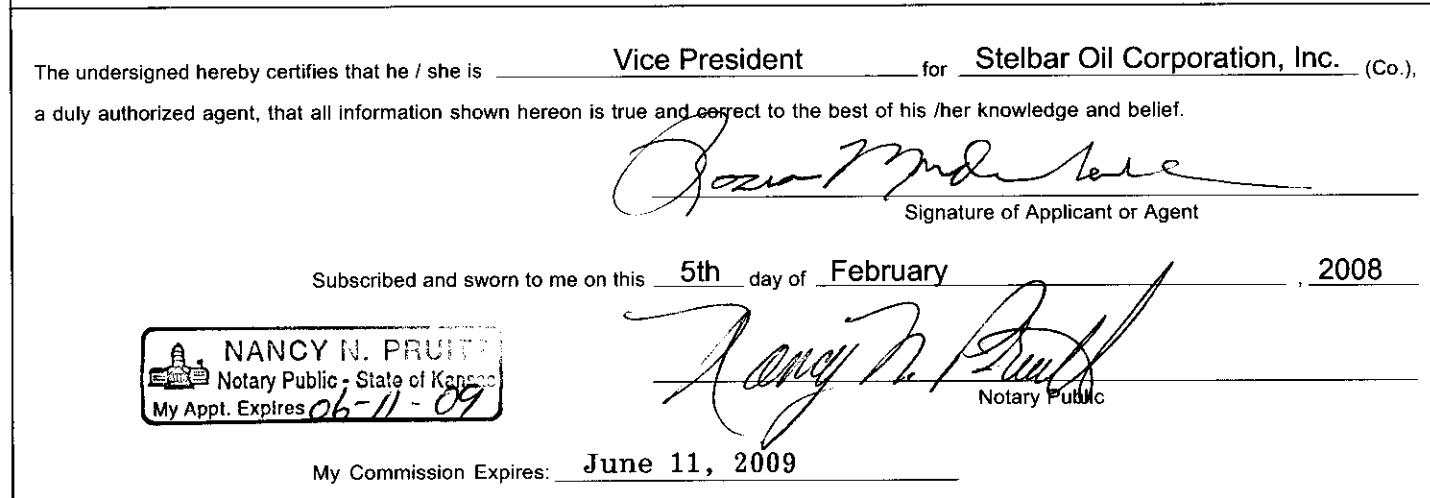 The undersigned hereby certifies that he / she is Vice President for Stelbar Oil Corporation, Inc. (Co.),
a duly authorized agent, that all information shown hereon is true and correct to the best of his /her knowledge and belief.
Signature of Applicant or Agent
Subscribed and sworn to me on this 5th day of February , 2008
NANCY N. PRUITT
Notary Public - State of Kansas
My Appt. Expires 06-11-09
Nancy N. Pruitt
Notary Public
My Commission Expires: June 11, 2009